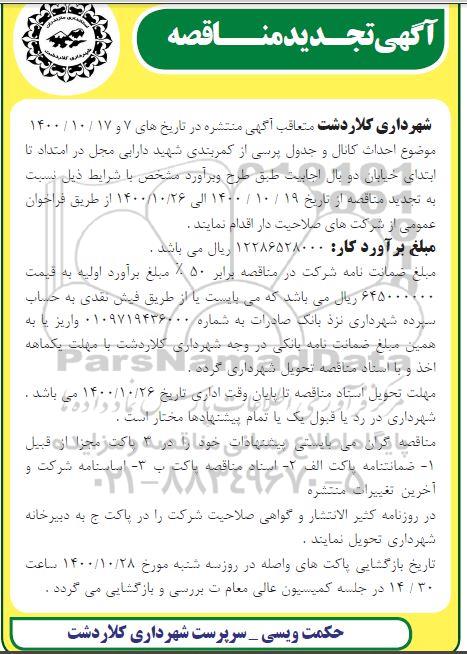 آگهی تجدید مناقصه
شهرداری کلاردشت متعاقب آگهی منتشره در تاریخ های ۷ و ۱۷ / ۱۰ / ۱۴۰۰
موضوع احداث کانال و جدول پرسی از کمربندی شهید دارابی مجل در امتداد تا
ابتدای خیابان دو بال اجابیت طبق طرح وبرآورد مشخص با شرایط ذیل نسبت
به تجدید مناقصه از تاریخ ۱۹ / ۱۰ / ۱۴۰۰ الی ۱۴۰۰/۱۰/۲۶ از طریق فراخوان
عمومی از شرکت های صلاحیت دار اقدام نمایند .
مبلغ برآورد کار: ۱۲۲۸۶۵۲۸۰۰۰ ریال می باشد .
مبلغ ضمانت نامه شرکت در مناقصه برابر ۵۰ ٪ مبلغ برآورد اولیه به قیمت
۶۴۵۰۰۰۰۰۰ ریال می باشد که می بایست یا از طریق فیش نقدی به حساب
سپرده شهرداری نزذ بانک صادرات به شماره ۰۱۰۹۷۱۹۴۳۶۰۰۰ واریز یا به
همین مبلغ ضمانت نامه بانکی در وجه شهرداری کلاردشت با مهلت یکماهه
اخذ و با اسناد مناقصه تحویل شهرداری گردد .
مهلت تحویل اسناد مناقصه تا پایان وقت اداری تاریخ ۱۴۰۰/۱۰/۲۶ می باشد .
شهرداری در رد یا قبول یک یا تمام پیشنهادها مختار است .
مناقصه گران می بایستی پیشنهادات خود را در ۳ پاکت مجزا از قبیل
۱- ضمانتنامه پاکت الف ۲- اسناد مناقصه پاکت ب ۳- اساسنامه شرکت و
آخرین تغییرات منتشره
در روزنامه کثیر الانتشار و گواهی صلاحیت شرکت را در پاکت ج به دبیرخانه
شهرداری تحویل نمایند .
تاریخ بازگشایی پاکت های واصله در روزسه شنبه مورخ ۱۴۰۰/۱۰/۲۸ ساعت
۳۰ / ۱۴ در جلسه کمیسیون عالی معام ت بررسی و بازگشایی می گردد .
حکمت ویسی _ سرپرست شهرداری کلاردشت
ParsNamadData
۰۲۱-۸۸۳۴۹۶۷۰-۵